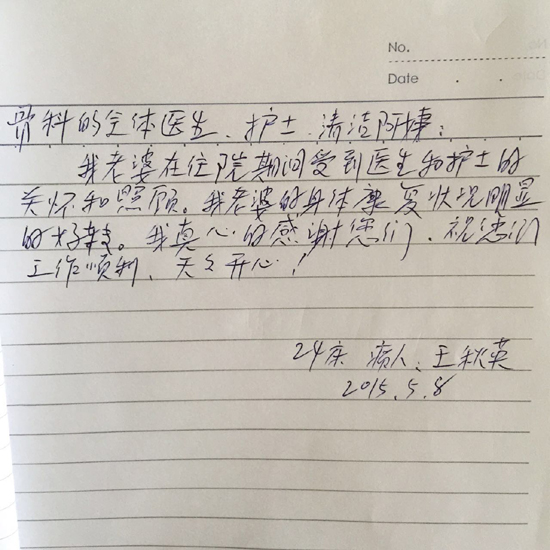 No.
Date . .
骨科的全体医生、护士、清洁阿姨:
我老婆在住院期间受到医生和护士的
关怀和照顾。我老婆的身体康复状况明显
的好转。我真心的感谢您们、祝您们
工作顺利、天天开心!
24床 病人:王秋英
2015.5.8